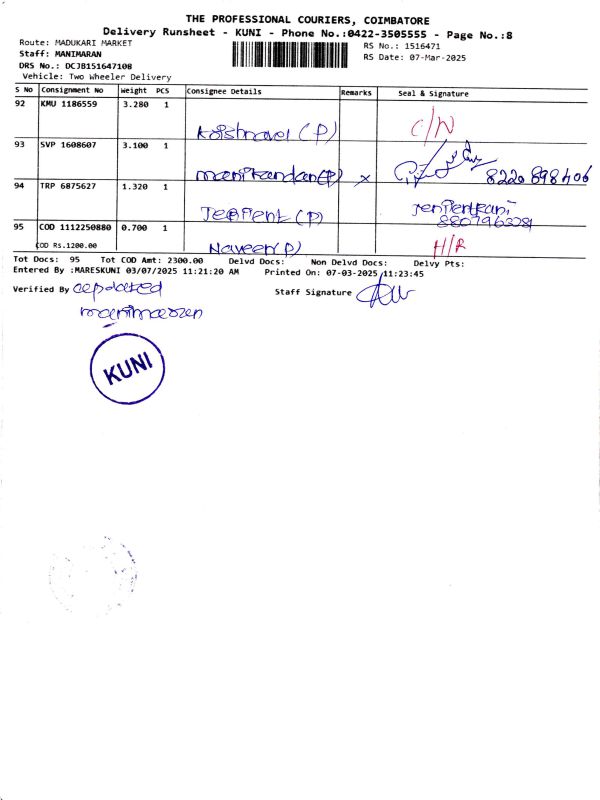 THE PROFESSIONAL COURIERS, COIMBATORE
Delivery Runsheet - KUNI - Phone No.:0422-3505555 - Page No.:8
Route: MADUKARI MARKET
RS No.: 1516471
Staff: MANIMARAN
RS Date: 07-Mar-2025
DRS No.: DCJB151647108
Vehicle: Two Wheeler Delivery
S No Consignment No Weight PCS Consignee Details Remarks Seal & Signature
92 KMU 1186559 3.280 1
(P) C/N
93 SVP 1608607 3.100 1
manikandan (P) x 8220 898406
94 TRP 6875627 1.320 1
(P)
95 COD 1112250880 0.700 1
COD RS.1200.00 Naveen (P) H/R
Tot Docs: 95 Tot COD Amt: 2300.00 Delvd Docs: Non Delvd Docs: Delvy Pts:
Entered By :MARESKUNI 03/07/2025 11:21:20 AM Printed On: 07-03-2025 11:23:45
Verified By Staff Signature
KUNI